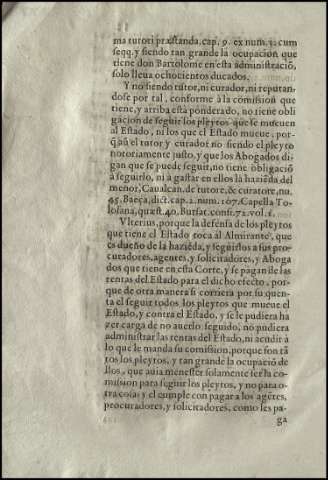 ma tutori præstanda. cap. 9. ex num. 3. cum
seqq. y siendo tan grande la ocupacion que
tiene don Bartolome en esta administració,
solo lleua ochocientos ducados.
Y no siendo tutor, ni curador, ni reputan-
dose por tal, conforme à la comission que
tiene, y arriba està ponderado, no tiene obli
gacion de seguir los pleytos que se mueuen
al Estado, ni los que el Estado mueue, por-
q̃ aũ el tutor y curador no siendo el pleyto
notoriamente justo, y que los Abogados di-
gan que se puede seguir, no tiene obligació
à seguirlo, ni à gastar en ellos la haziẽda del
menor, Caualcan. de tutore, & curatore, nu.
45. Baeça, dict. cap. 2. num. 107. Capella To-
losana, quæst. 40. Bursat. cons. 72. vol. 1.
Vlterius, porque la defensa de los pleytos
que tiene el Estado toca àl Almirante, que
es dueño de la haziẽda, y seguirlos a sus pro-
curadores, agentes, y solicitadores, y Aboga
dos que tiene en esta Corte, y se pagan de las
rentas del Estado para el dicho efecto, por-
que de otra manera si corriera por su quen-
ta el seguir todos los pleytos que mueue el
Estado, y contra el Estado, y se le pudiera ha
zer carga de no auerlo seguido, no pudiera
administrar las rentas del Estado, ni acudir à
lo que le manda su comission, porque son tã
tos los pleytos, y tan grande la ocupació de
llos, que auia menester solamente ser la co-
mission para seguir los pleytos, y no para o-
tra cosa: y el cumple con pagar a los agẽtes,
procuradores, y solicitadores, como les pa-
ga